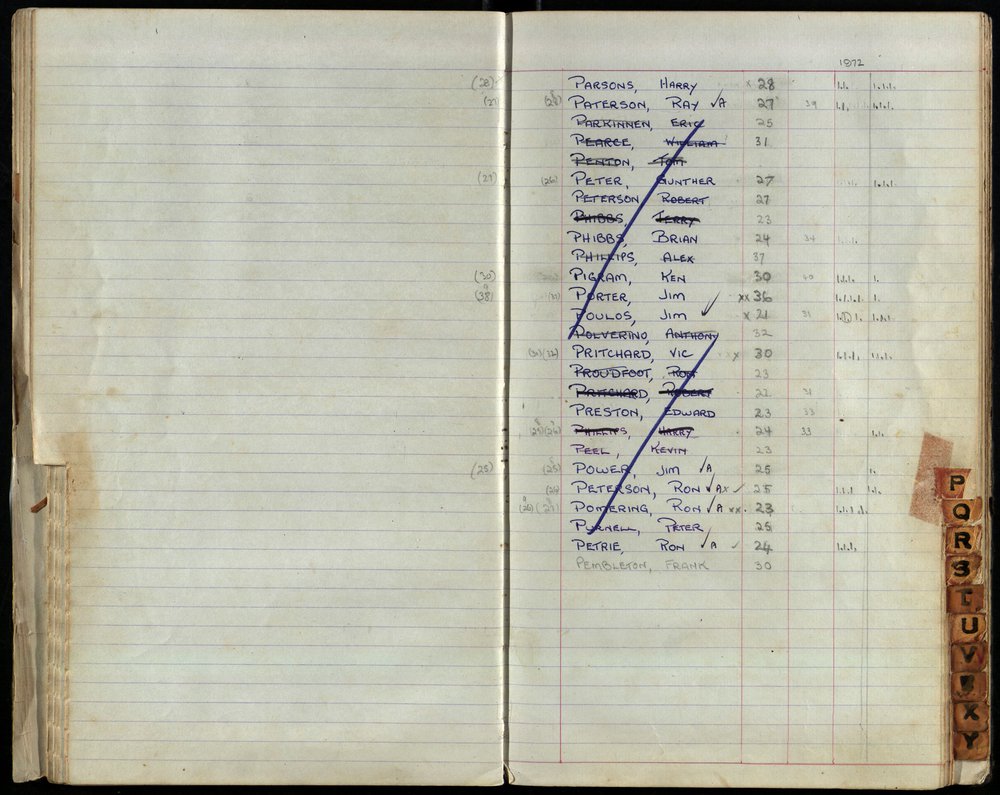 1972
(28) PARSONS, HARRY x 28
(27) (28) PATERSON, RAY √A 27 39
PARKINNEN, ERIC 25
PEARCE, WILLIAM 31
PENTON, TOM
(27) (26) PETER, GUNTHER 27
PETERSON ROBERT 27
PHIBBS, TERRY 23
PHIBBS, BRIAN 24 34
PHILLIPS, ALEX 37
(30) PIGRAM, KEN 30 40
(38) PORTER, JIM xx 36
POULOS, JIM √ x 21 31
POLVERINO, ANTHONY 32
PRITCHARD, VIC 30
PROUDFOOT, RON 23
PRITCHARD, ROBERT 22 31
PRESTON, EDWARD 23 33
(25)(26) PHILLIPS, HARRY 24 33
PEEL, KEVIN 23
(25) (25) POWER, JIM √A 25
PETERSON, RON √Ax √ 25
POMERING, RON √A xx 23
PURNELL, PETER 25
PETRIE, RON √A √ 24
PEMBLETON, FRANK 30
P
Q
R
S
T
U
V
X
Y